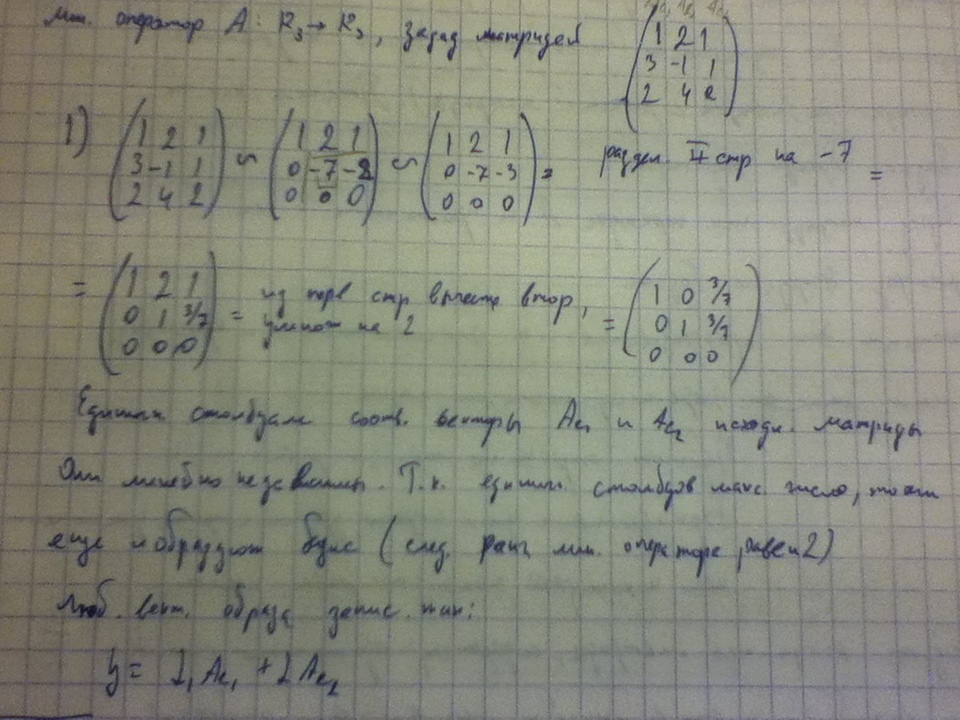 Лин. оператор A: R₃ → R₃, задад матридей
Ae₁ Ae₂ Ae₃
1 2 1
3 -1 1
2 4 2
1) (1 2 1; 3 -1 1; 2 4 2) ~ (1 2 1; 0 -7 -2; 0 0 0) ~ (1 2 1; 0 -7 -3; 0 0 0) = раздел. II стр на -7 =
= (1 2 1; 0 1 3/7; 0 0 0) = из перв стр вычесть втор, умнож на 2 = (1 0 3/7; 0 1 3/7; 0 0 0)
Единичн столбцам соотв. векторы Ae₁ и Ae₂ исходн. матрицы
Они линейно независимы. Т.к. единичн. столбцов макс. число, то они
еще и образуют базис (след. ранг лин. оператора равен 2)
Люб. вект. образа запис. так:
y = λ₁Ae₁ + λAe₂